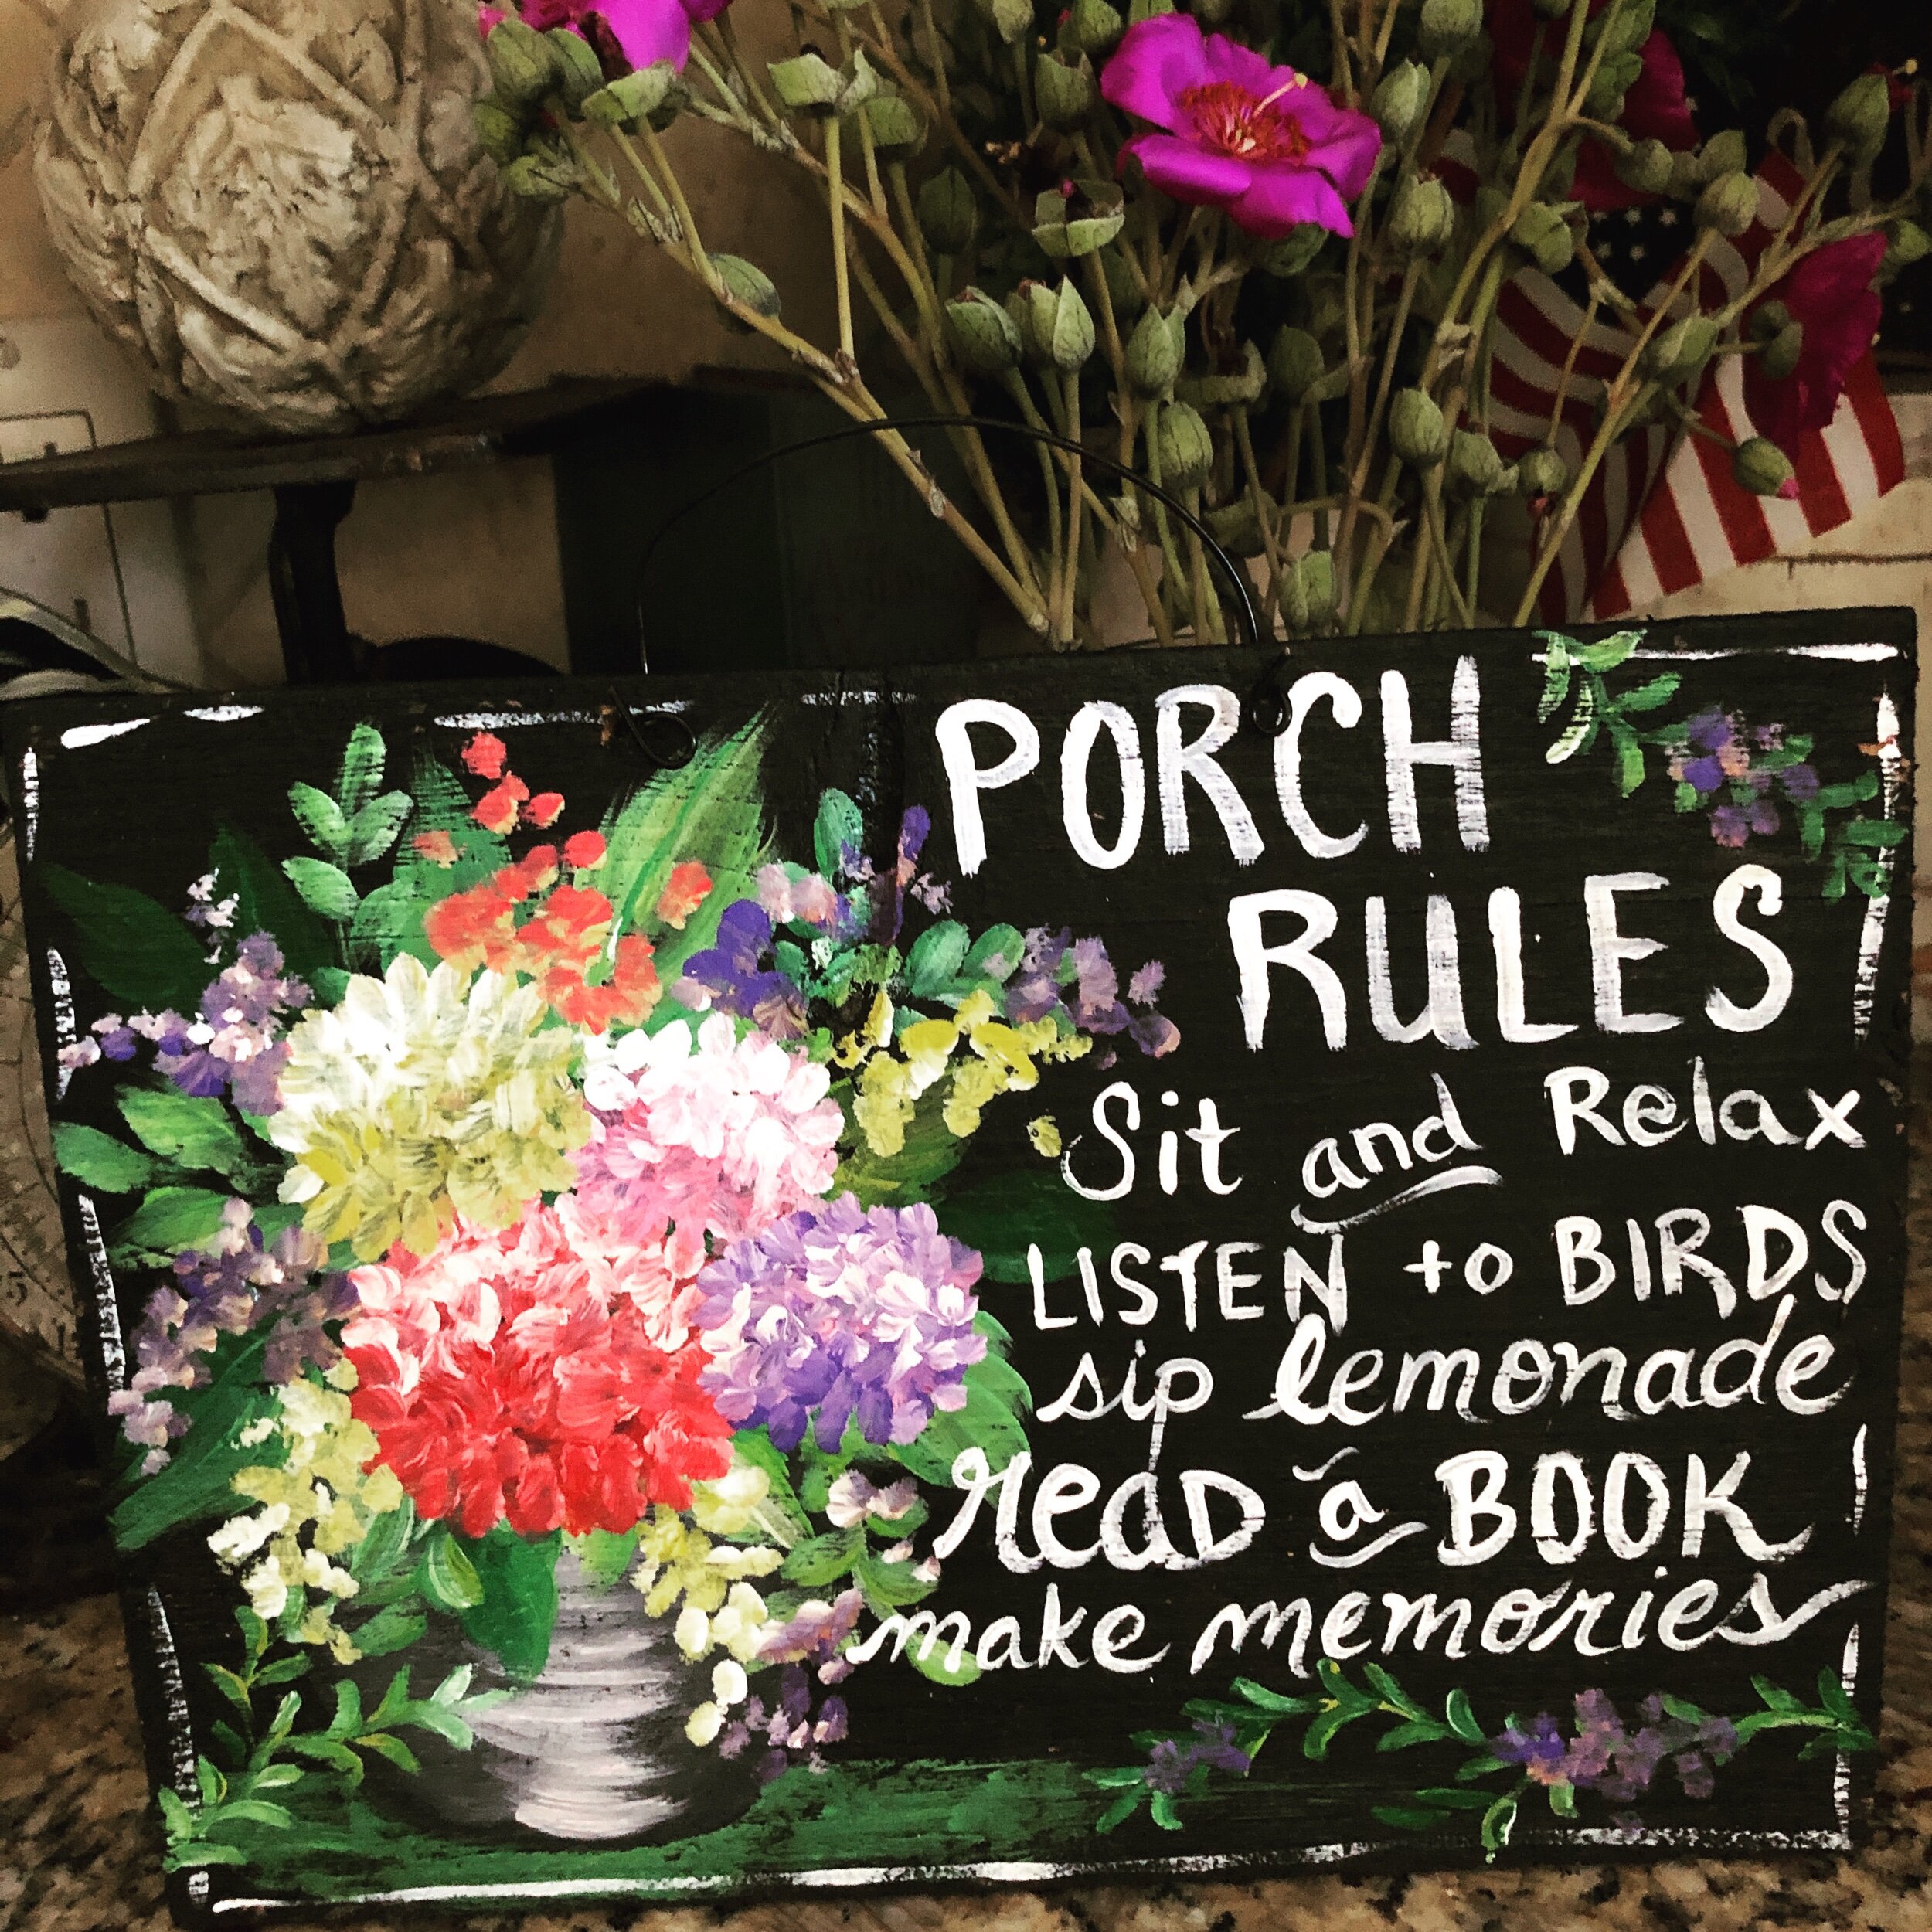 PORCH
RULES
Sit and Relax
LISTEN to BIRDS
sip lemonade
reaD a BOOK
make memories